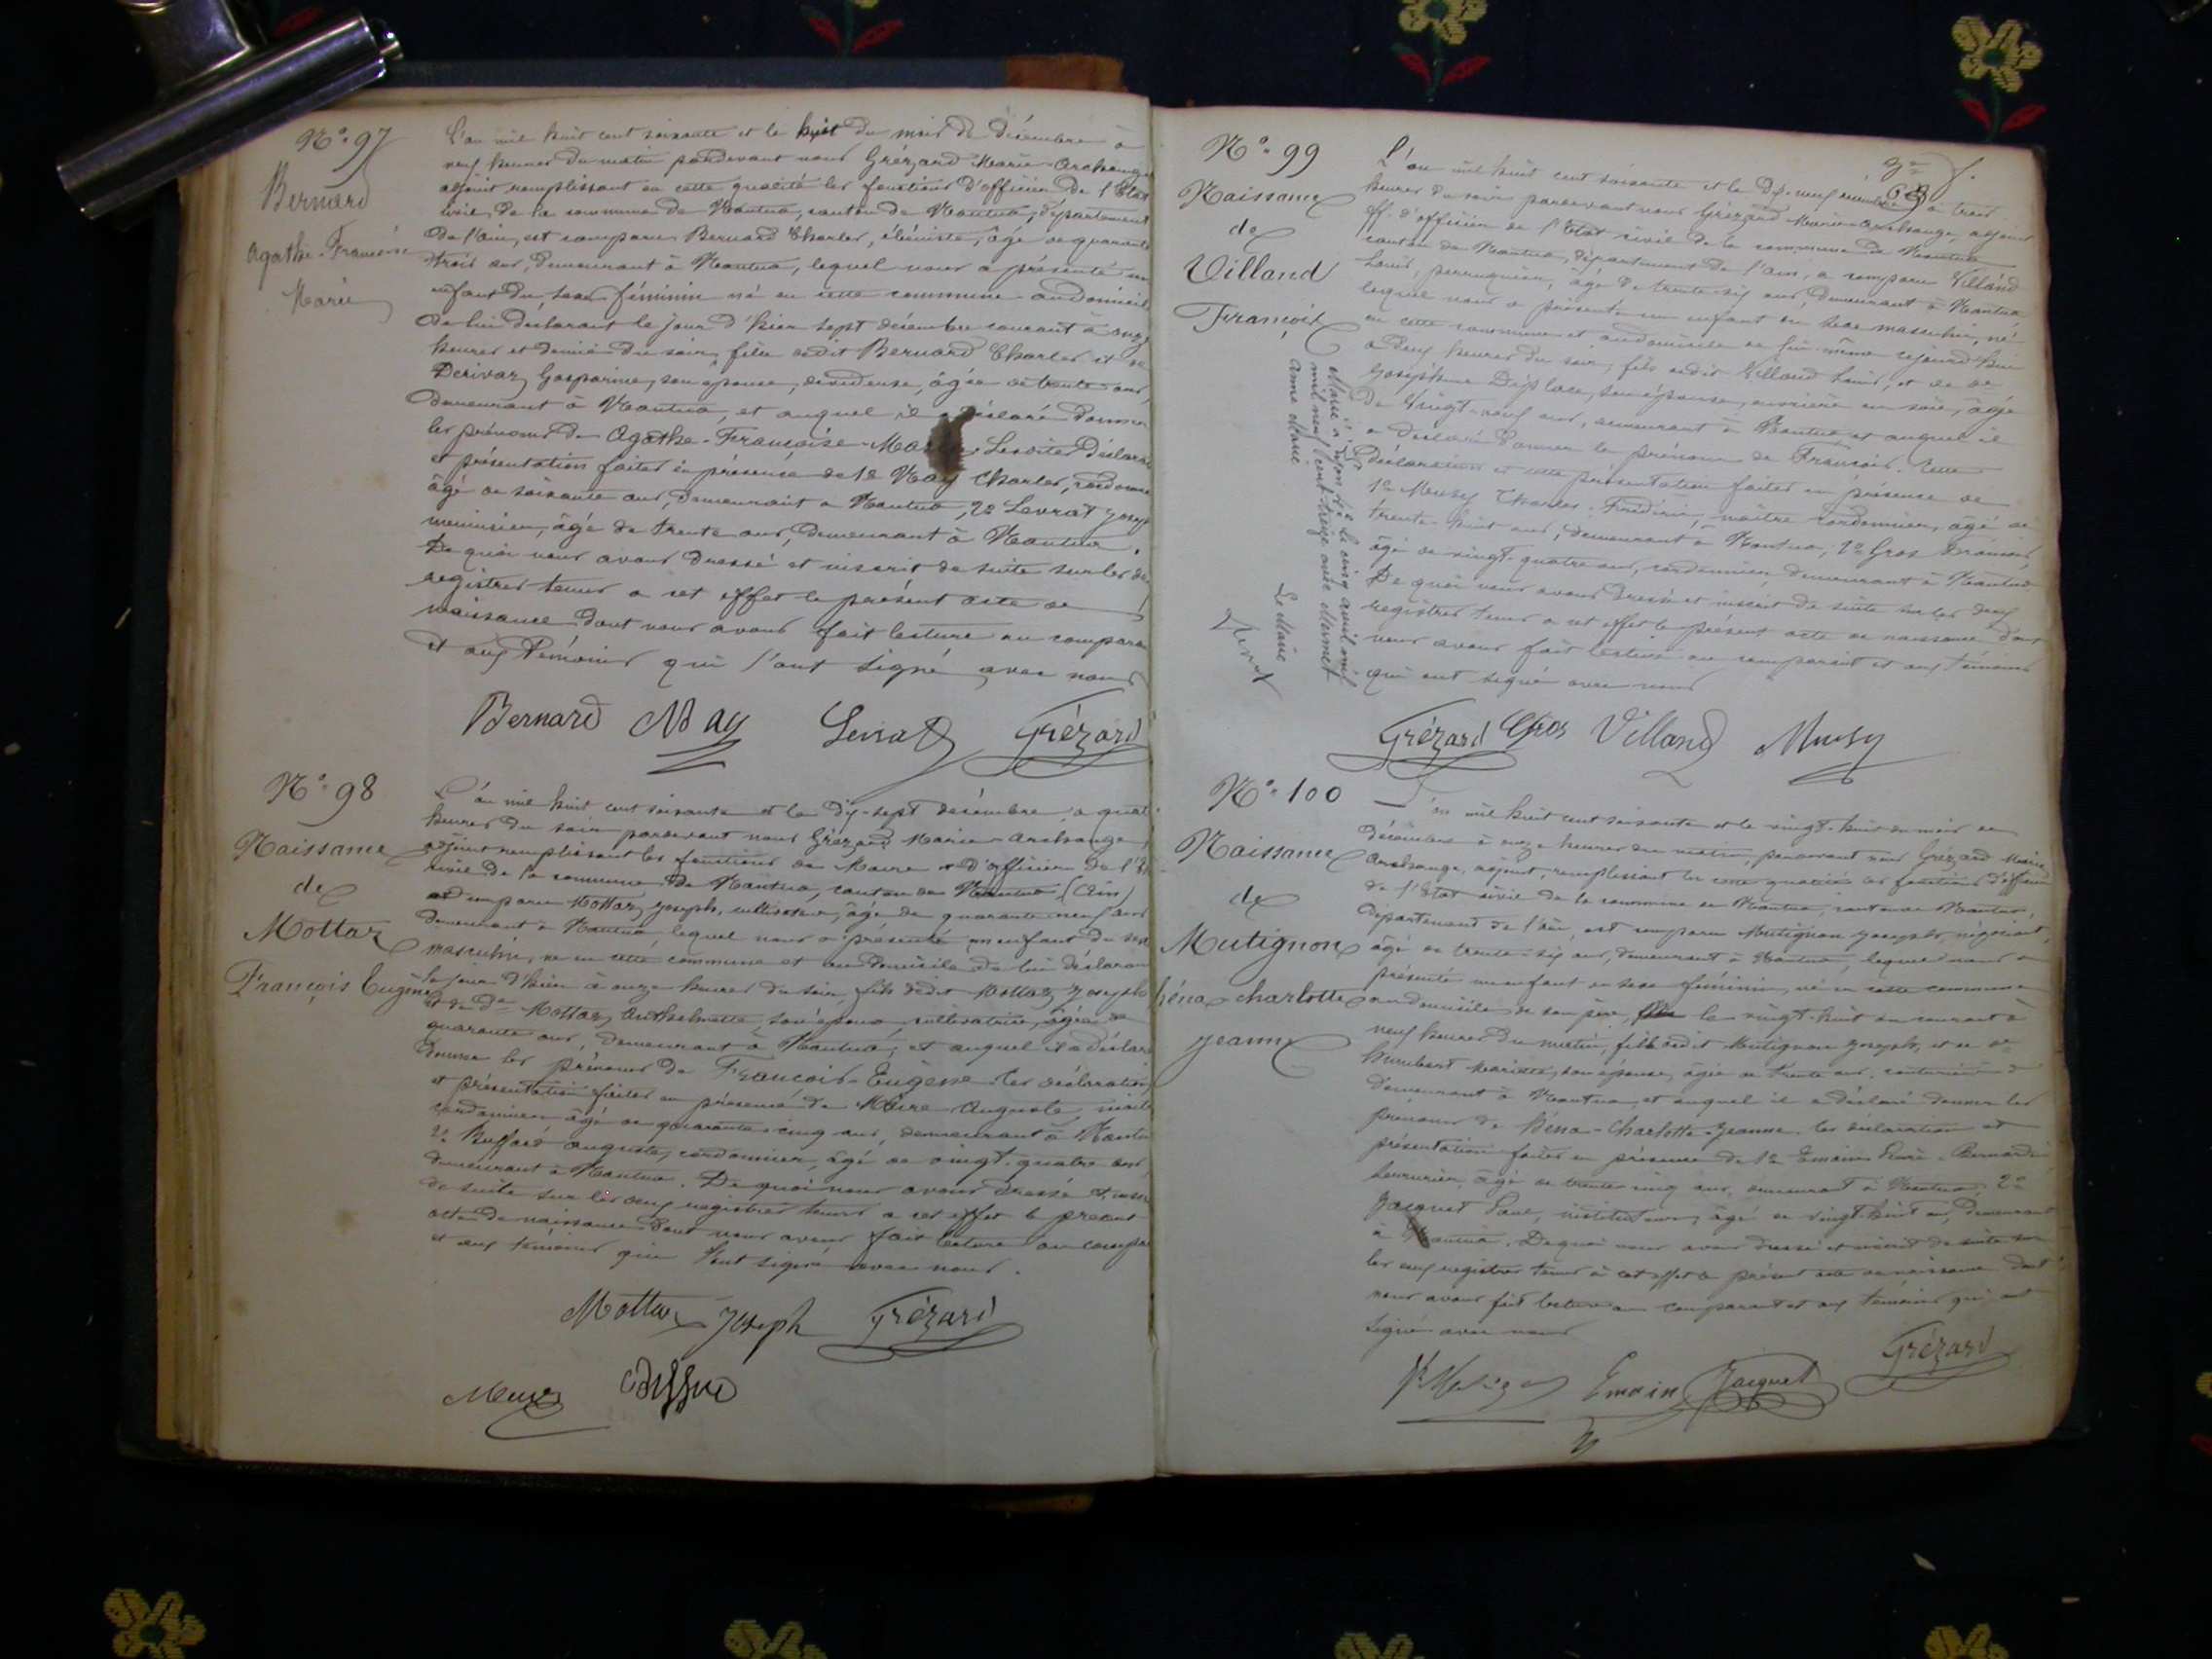 N° 97
Bernard
Agathe-Françoise
Marie
L'an mil huit cent soixante et le huit du mois de décembre à
neuf heures du matin pardevant nous Grézard Marie-Archange
adjoint remplissant en cette qualité les fonctions d'officier de l'État
civil de la commune de Nantua, canton de Nantua, département
de l'Ain, est comparu Bernard Charles, ébéniste, âgé de quarante
trois ans, demeurant à Nantua, lequel nous a présenté un
enfant du sexe féminin né en cette commune au domicile
de lui déclarant le jour d'hier sept décembre courant à onze
heures et demie du soir, fille dudit Bernard Charles et de
Derivaz Gasparine, son épouse, dévideuse, âgée de trente ans
demeurant à Nantua, et auquel il a déclaré donner
les prénoms de Agathe-Françoise-Marie. Lesdites déclaration
et présentation faites en présence de 1° May Charles, cordonnier
âgé de soixante ans, demeurant à Nantua, 2° Levrat Joseph
menuisier, âgé de trente ans, demeurant à Nantua.
De quoi nous avons dressé et inscrit de suite sur les deux
registres tenus à cet effet le présent acte de
naissance dont nous avons fait lecture au comparant
et aux témoins qui l'ont signé avec nous
Bernard May Levrat Grézard
N° 98
Naissance
de
Mottaz
François Eugène
L'an mil huit cent soixante et le dix-sept décembre, à quatre
heures du soir pardevant nous Grézard Marie-Archange
adjoint remplissant les fonctions de Maire et d'officier de l'État
civil de la commune de Nantua, canton de Nantua (Ain)
est comparu Mottaz Joseph, cultivateur, âgé de quarante neuf ans
demeurant à Nantua, lequel nous a présenté un enfant du sexe
masculin, né en cette commune et au domicile de lui déclarant
le jour d'hier à onze heures du soir, fils dudit Mottaz Joseph
et de De Mottaz Anthelmette, son épouse, cultivatrice, âgée de
quarante ans, demeurant à Nantua; et auquel il a déclaré
donner les prénoms de François-Eugène. Les déclaration
et présentation faites en présence de Auguste,
cordonnier âgé de quarante-cinq ans, demeurant à Nantua
2° Auguste, cordonnier, âgé de vingt-quatre ans,
demeurant à Nantua. De quoi nous avons dressé et inscrit
de suite sur les deux registres tenus à cet effet le présent
acte de naissance dont nous avons fait lecture au comparant
et aux témoins qui l'ont signé avec nous.
Mottaz Joseph Grézard
N° 99
Naissance
de
Villand
François
Marié à Dijon le cinq avril mil
mil neuf cent treize avec
anne Marie
Le Maire
L'an mil huit cent soixante et le dix-neuf décembre à trois
heures du soir pardevant nous Grézard Marie-Archange, adjoint
ff. d'officier de l'État civil de la commune de Nantua
canton de Nantua, département de l'Ain, a comparu Villand
Louis, perruquier, âgé de trente-six ans, demeurant à Nantua,
lequel nous a présenté un enfant du sexe masculin, né
en cette commune et au domicile de lui-même cejourd'hui
à deux heures du soir, fils dudit Villand Louis, et de De
Joséphine Déplace, son épouse, ouvrière en soie, âgée
de vingt-neuf ans, demeurant à Nantua et auquel il
a déclaré donner le prénom de François. Cette
déclaration et cette présentation faites en présence de
1° Musy Charles-Frédéric, maître cordonnier, âgé de
trente-huit ans, demeurant à Nantua, 2° Gros François,
âgé de vingt-quatre ans, cordonnier, demeurant à Nantua
De quoi nous avons dressé et inscrit de suite sur les deux
registres tenus à cet effet le présent acte de naissance dont
nous avons fait lecture au comparant et aux témoins
qui ont signé avec nous
Grézard Gros Villand Musy
N° 100
Naissance
de
Mutignon
Léna-Charlotte
Jeanne
L'an mil huit cent soixante et le vingt-huit du mois de
décembre à onze heures du matin, pardevant nous Grézard Marie
Archange, adjoint, remplissant en cette qualité les fonctions d'officier
de l'État civil de la commune de Nantua, canton de Nantua,
département de l'Ain, est comparu Mutignon Joseph, négociant,
âgé de trente-six ans, demeurant à Nantua, lequel nous a
présenté un enfant du sexe féminin, né en cette commune
au domicile de son père, le vingt-huit du courant à
neuf heures du matin, fille dudit Mutignon Joseph, et de De
Humbert Mariette, son épouse, âgée de trente ans,
demeurant à Nantua et auquel il a déclaré donner les
prénoms de Léna-Charlotte-Jeanne. Les déclaration et
présentation faites en présence de 1° Emain
âgé de trente cinq ans, demeurant à Nantua, 2°
Jacquet Paul, instituteur, âgé de vingt-huit ans, demeurant
à Nantua. De quoi nous avons dressé et inscrit de suite sur
les deux registres tenus à cet effet le présent acte de naissance dont
nous avons fait lecture au comparant et aux témoins qui ont
signé avec nous
Emain Jacquet Grézard